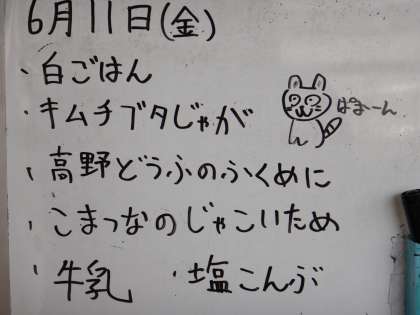 6月11日(金)
・白ごはん
・キムチブタじゃが
ぽよーん
・高野どうふのふくめに
・こまつなのじゃこいため
・牛乳 ・塩こんぶ